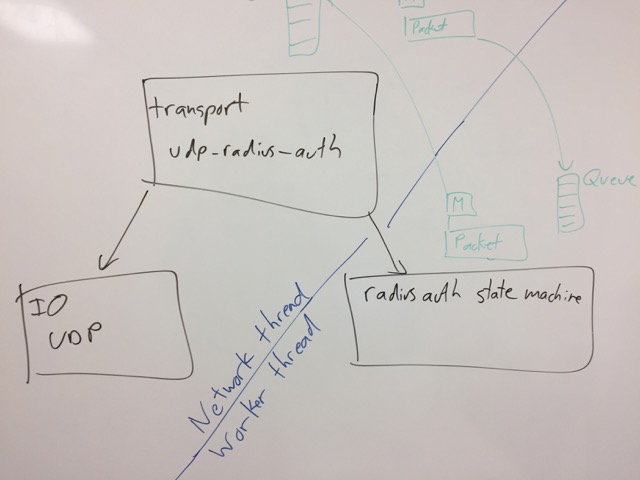 M
Packet
transport
udp-radius-auth
Queue
M
Packet
IO
UDP
radius auth state machine
Network thread
Worker thread